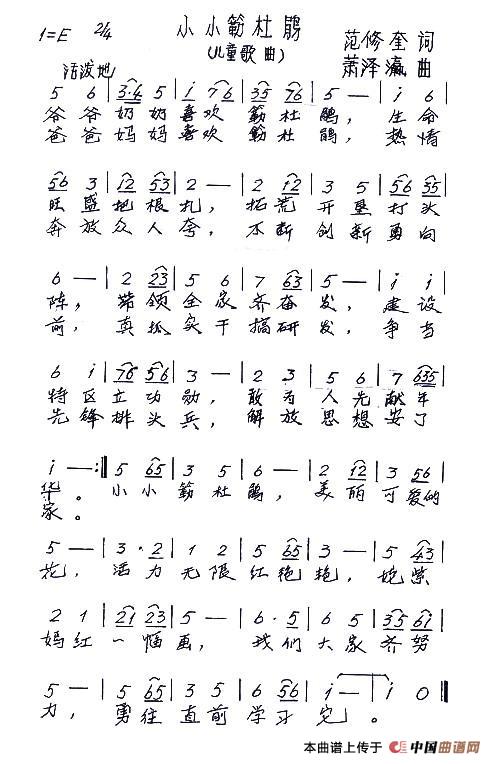 小小簕杜鹃
(儿童歌曲)
1=E 2/4
范修奎 词
活泼地
萧泽瀛 曲
5 6 | 3·4 5 | i 76 | 35 76 | 5 — | i 6
爷爷奶奶喜欢簕杜鹃，生命
爸爸妈妈喜欢簕杜鹃，热情
56 3 | 12 53 | 2 — | 2 12 | 3 5 | 56 35
旺盛把根扎，拓荒开垦打头
奔放众人夸，不断创新勇向
6 — | 2 23 | 5 6 | 7 63 | 5 — | i i
阵，带领全家齐奋发，建设
前，真抓实干搞研发，争当
6 i | 76 56 | 3 — | 2 3 | 5 6 | 7 635
特区立功勋，敢为人先献年
先锋排头兵，解放思想安了
i — :‖ 5 65 | 3 5 | 6 — | 2 12 | 3 56
华。小小簕杜鹃，美丽可爱的
家。
5 — | 3·2 | 1 2 | 5 65 | 3 — | 5 43
花，活力无限红艳艳，姹紫
2 1 | 21 23 | 5 — | 6·5 | 6 5 | 35 61
嫣红一幅画，我们大家齐努
5 — | 5 65 | 3 5 | 6 56 | i — | i 0 ‖
力，勇往直前学习它。
本曲谱上传于 中国曲谱网